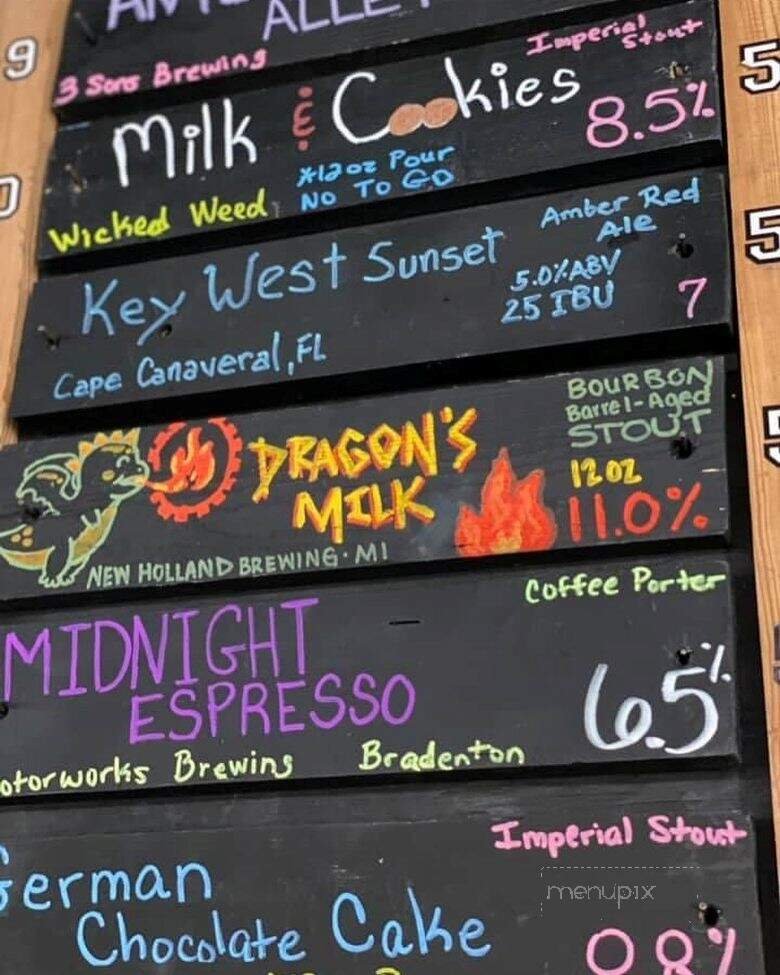 9
ALLE
3 Sons Brewing
Imperial
Stout
5
Milk & Cookies
8.5%
*12oz Pour
No To Go
Wicked Weed
Amber Red
Ale
5
Key West Sunset
5.0% ABV
25 IBU
7
Cape Canaveral, FL
BOURBON
Barrel-Aged
STOUT
DRAGON'S
MILK
12 oz
11.0%
NEW HOLLAND BREWING · MI
Coffee Porter
MIDNIGHT
ESPRESSO
6.5%
otorworks Brewing Bradenton
Imperial Stout
German
Chocolate Cake
menupix